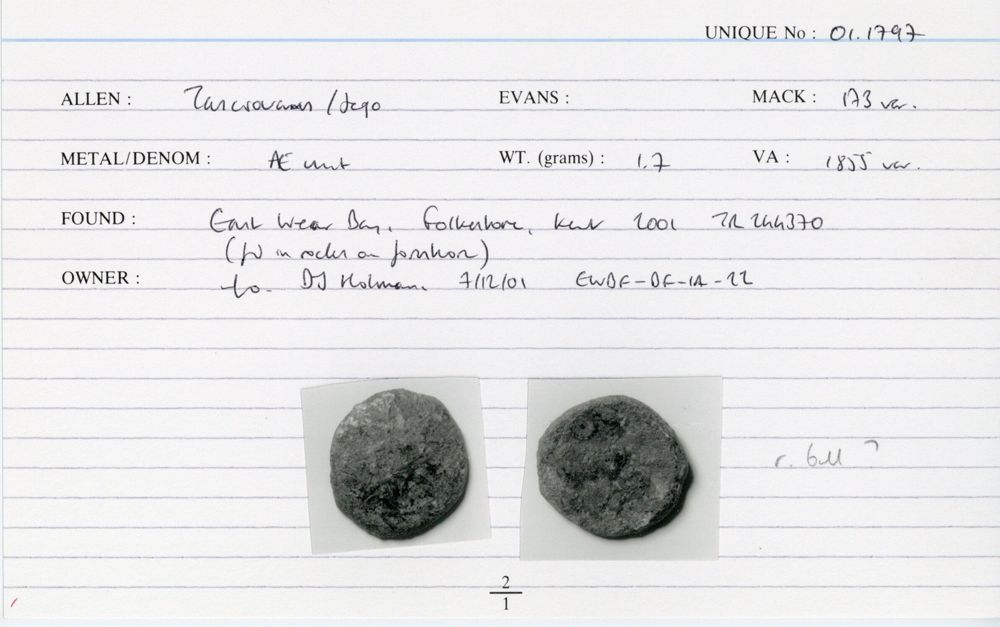 UNIQUE No : 01.1797
ALLEN : Tasciovanus / Sego EVANS : MACK : 173 var.
METAL/DENOM : Æ unit WT. (grams) : 1.7 VA : 1855 var.
FOUND : East Wear Bay, Folkestone, Kent 2001 TR 244370
(fd in rocks on foreshore)
OWNER : fo. DJ Holman. 7/12/01 EWBF-DF-IA-22
r. bull ?
2
1